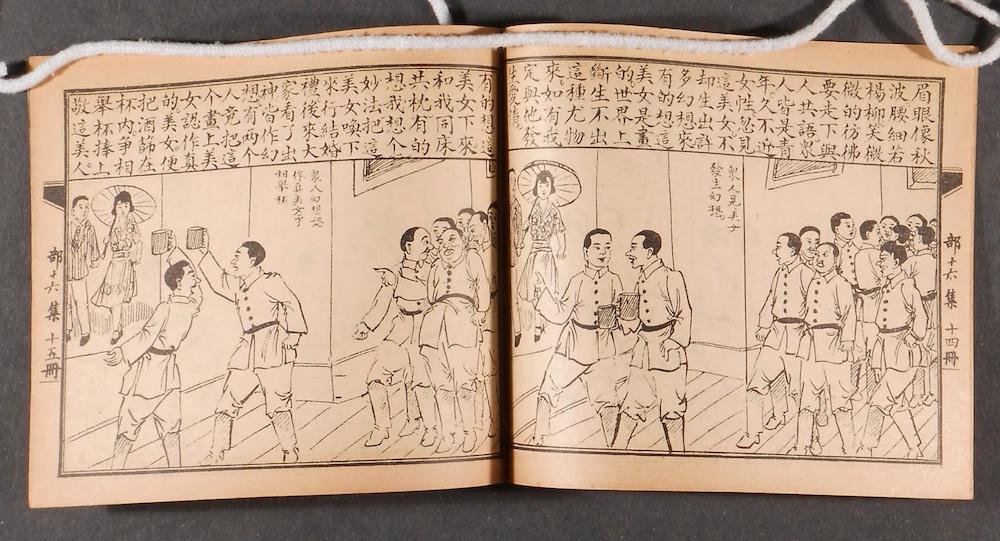 眉眼像秋
波腰細若
楊柳笑微
微的彷彿
要走下與
人共語衆
人皆是青
年久不近
女性忽見
這美女不
却生出許
多幻想來
有的想這
美女是畫
的世界上
斷生不出
這種尤物
來如有我
定與他發
愛
衆人見美女
發生幻想
部十六集十四冊
有的想這
美女下來
和我同床
共枕有的
想我想个
妙法把這
美女喚下
來行結婚
禮後來大
家看了出
神皆作幻
想有兩个
人竟把這
个畫上美
女認作真
的美女便
把酒師在
杯内爭相
舉杯捧上
敬這美人。
衆人幻想認
作真美女爭
相舉杯
部十六集十五冊